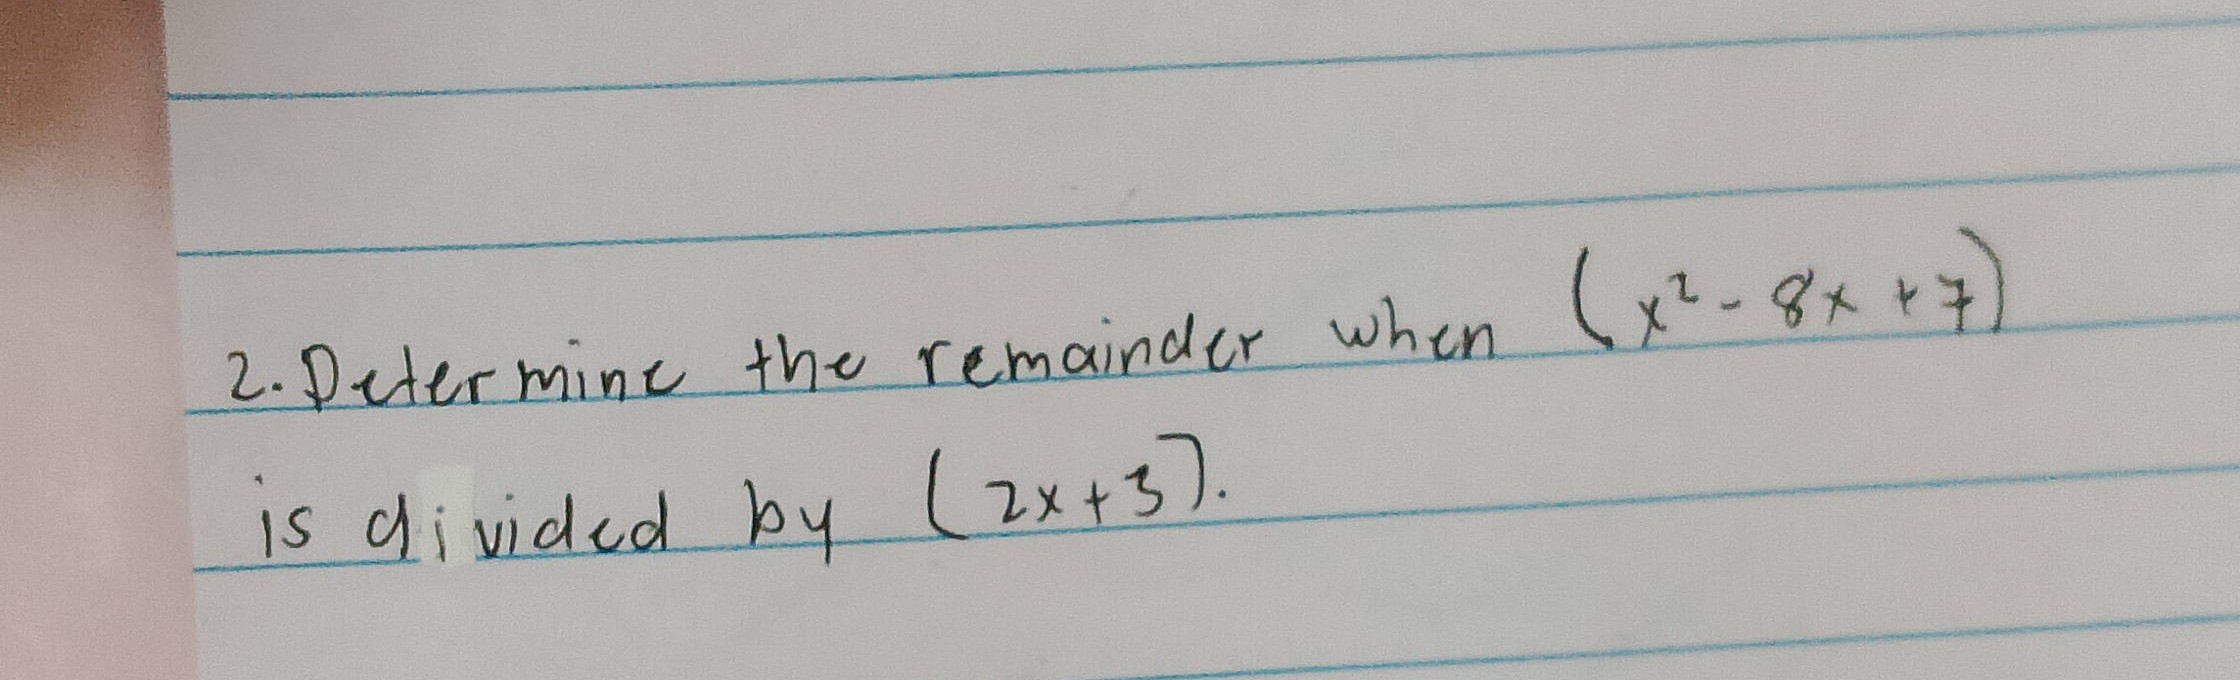 2. Determine the remainder when (x² - 8x + 7)
is divided by (2x+3).